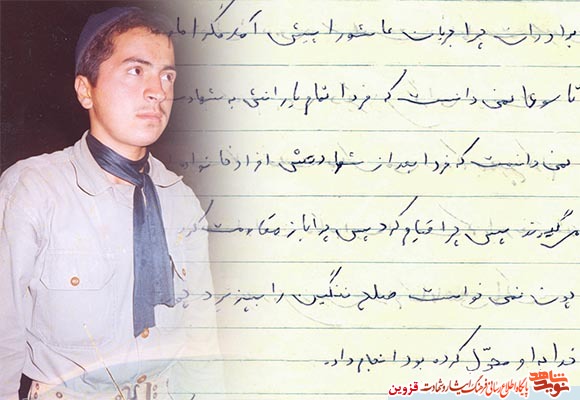 برادران چرا جریان عاشورا پیش آمد مگر امام
تاسوعا نمی دانست که فردا تمام یارانش به شهادت
نمی دانست که فردا بعد از شهادتش افراد خانواده
می گیرند پس چرا قیام کرد پس چرا باز مقاومت کرد
چون نمی خواست صلح ننگین را بپذیرد
خدا به او محوّل کرده بود انجام داد.
نوید شاهد
پایگاه اطلاع رسانی فرهنگ ایثار و شهادت قزوین